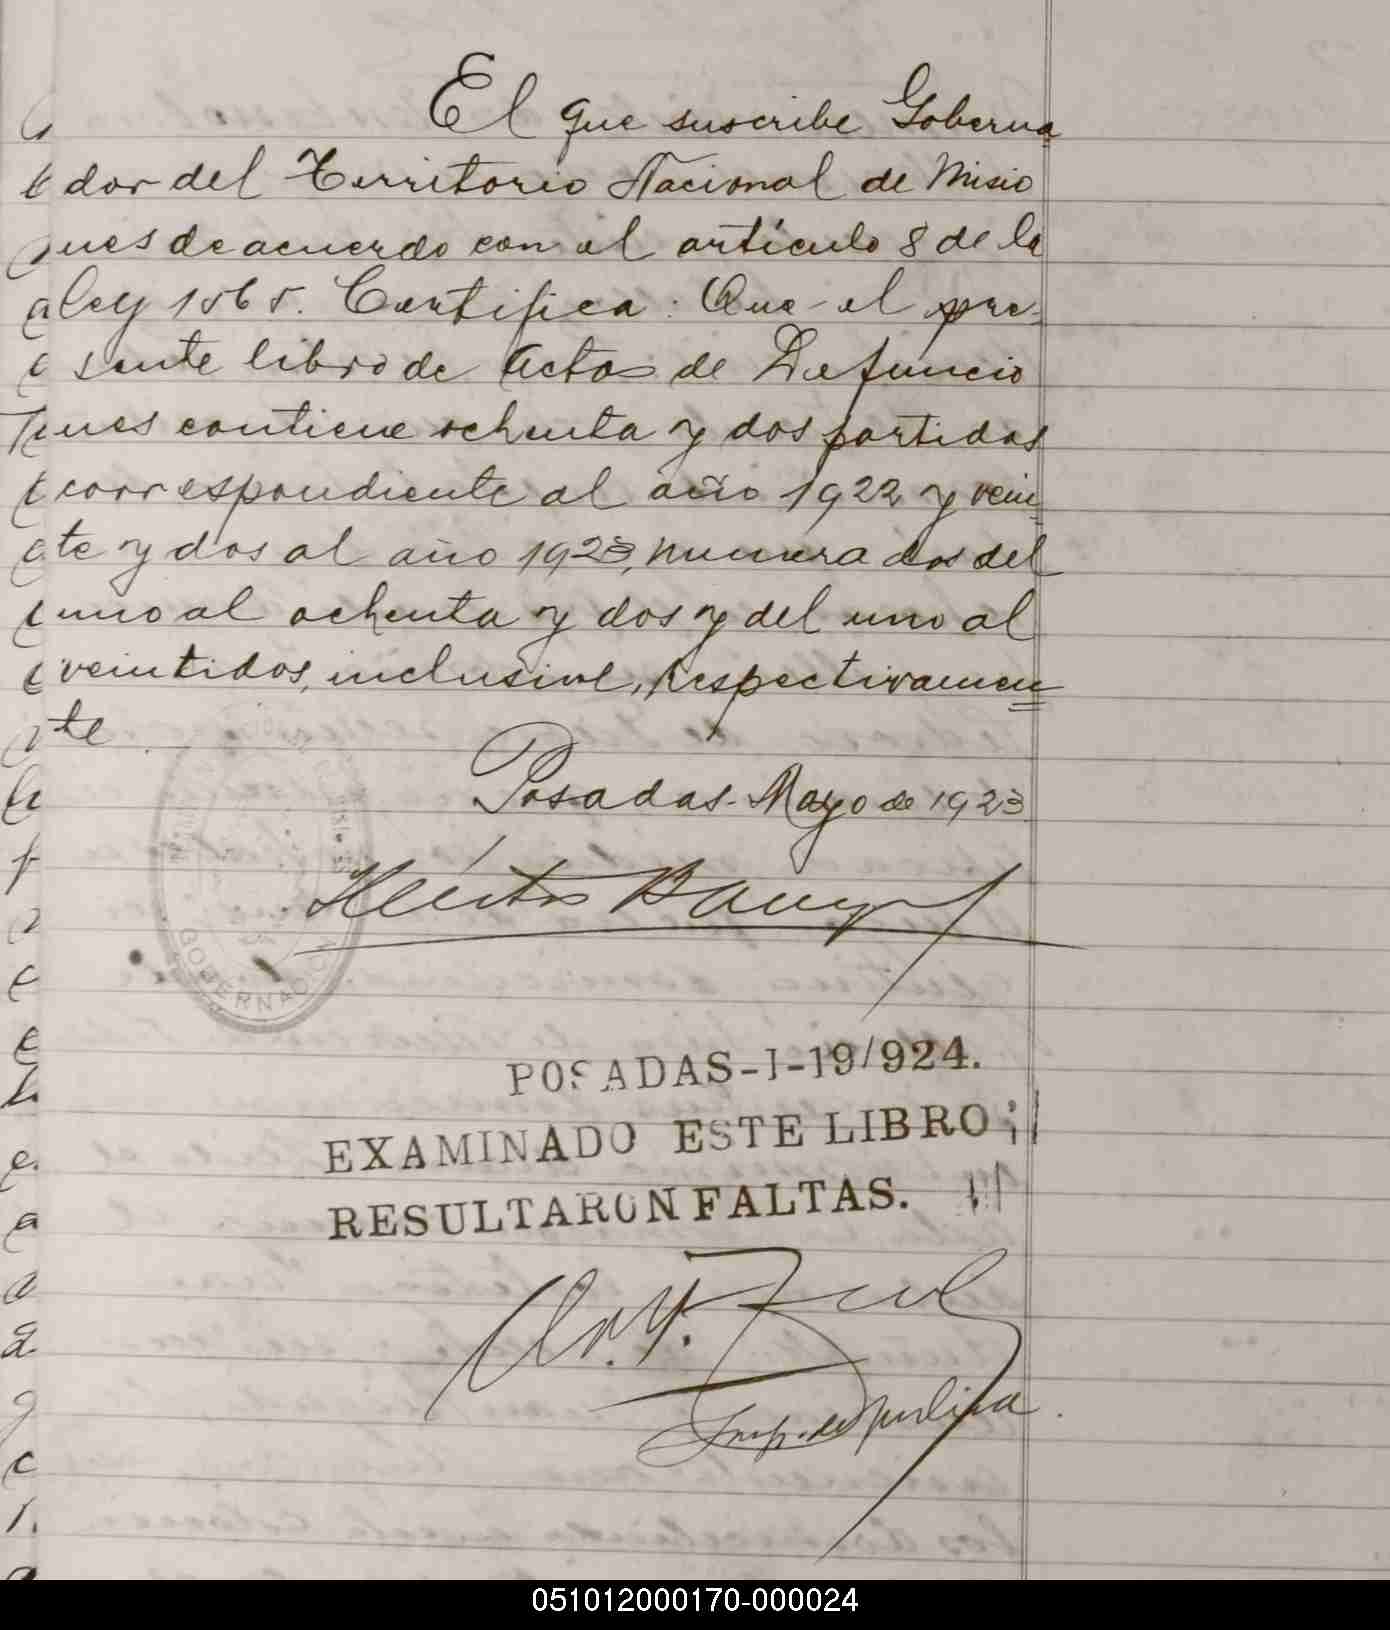 El que suscribe Goberna
dor del Territorio Nacional de Misio
nes de acuerdo con el artículo 8 de la
ley 1565. Certifica: Que el pre-
sente libro de actas de Defuncio
nes contiene ochenta y dos partidas
correspondiente al año 1922 y vein
te y dos al año 1923, numeradas del
uno al ochenta y dos y del uno al
veintidos, inclusive, respectivamen
te
Posadas - Mayo de 1923
Héctor Barreyro
GOBERNACION
POSADAS-I-19/924.
EXAMINADO ESTE LIBRO;
RESULTARON FALTAS.
051012000170-000024